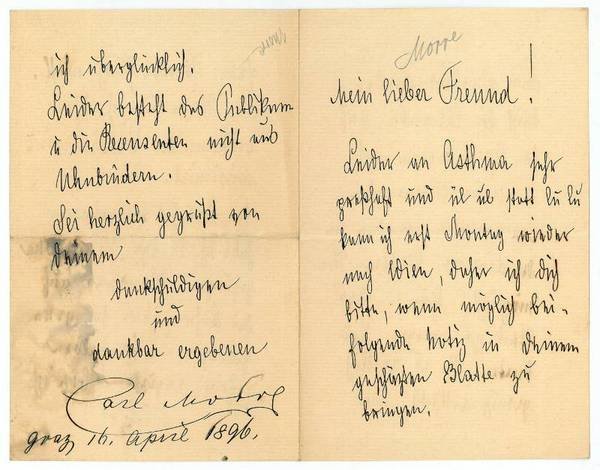 Morre
Mein lieber Freund!
Leider an Asthma sehr
preßhaft und statt lu lu
kann ich erst Montag wieder
nach Wien, daher ich Dich
bitte, wenn möglich bei-
folgende Notiz in Deinem
geschätzten Blatte zu
bringen.
Morre
ich überglücklich.
Leider besteht das Publikum
u die Rezensenten nicht aus
Uhubrüdern.
Sei herzlich gegrüßt von
Deinem
dankschuldigen
und
dankbar ergebenen
Carl Morre
Graz 16. April 1896.